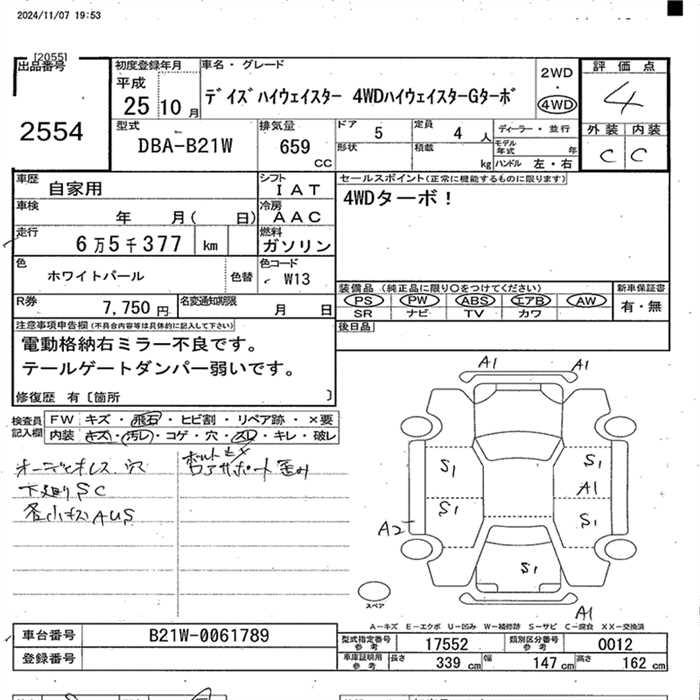 2024/11/07 19:53
[2055]
出品番号
2554
初度登録年月
平成
25 10 月
車名・グレード
ﾃﾞｲｽﾞﾊｲｳｪｲｽﾀｰ 4WDﾊｲｳｪｲｽﾀｰGﾀｰﾎﾞ
2WD
4WD
評価点
4
外装 内装
C C
型式
DBA-B21W
排気量
659
CC
ドア 5
定員 4 人
形状
積載
kg
ディーラー・並行
モデル年式 年
ハンドル 左・右
車歴 自家用
シフト IAT
車検 年 月( 日)
冷房 AAC
走行 6万5千377 km
燃料 ガソリン
色 ホワイトパール
色替
色コード W13
R券 7,750 円
名変通知期限 月 日
セールスポイント(正常に機能するものに限ります)
4WDターボ！
装備品 (純正品に限り○をつけてください)
PS PW ABS エアB AW
SR ナビ TV カワ
新車保証書
有・無
後日品
注意事項申告欄(不具合内容等は具体的に記入して下さい)
電動格納右ミラー不良です。
テールゲートダンパー弱いです。
修復歴 有〔箇所 〕
検査員記入欄
FW キズ・飛石・ヒビ割・リペア跡・×要
内装 キズ・汚レ・コゲ・穴・スレ・キレ・破レ
オーディオレス 穴
下廻りSC
各小キズAUS
ロアサポート歪み
A1 A1
S1 S1
A1
S1 S1
A2
S1
A1
スペア
A－キズ E－エクボ U－凹み W－補修跡 S－サビ C－腐食 XX－交換済
車台番号 B21W-0061789
登録番号
型式指定番号参考 17552
類別区分番号参考 0012
車庫証明用参考 長さ 339 cm 幅 147 cm 高さ 162 cm